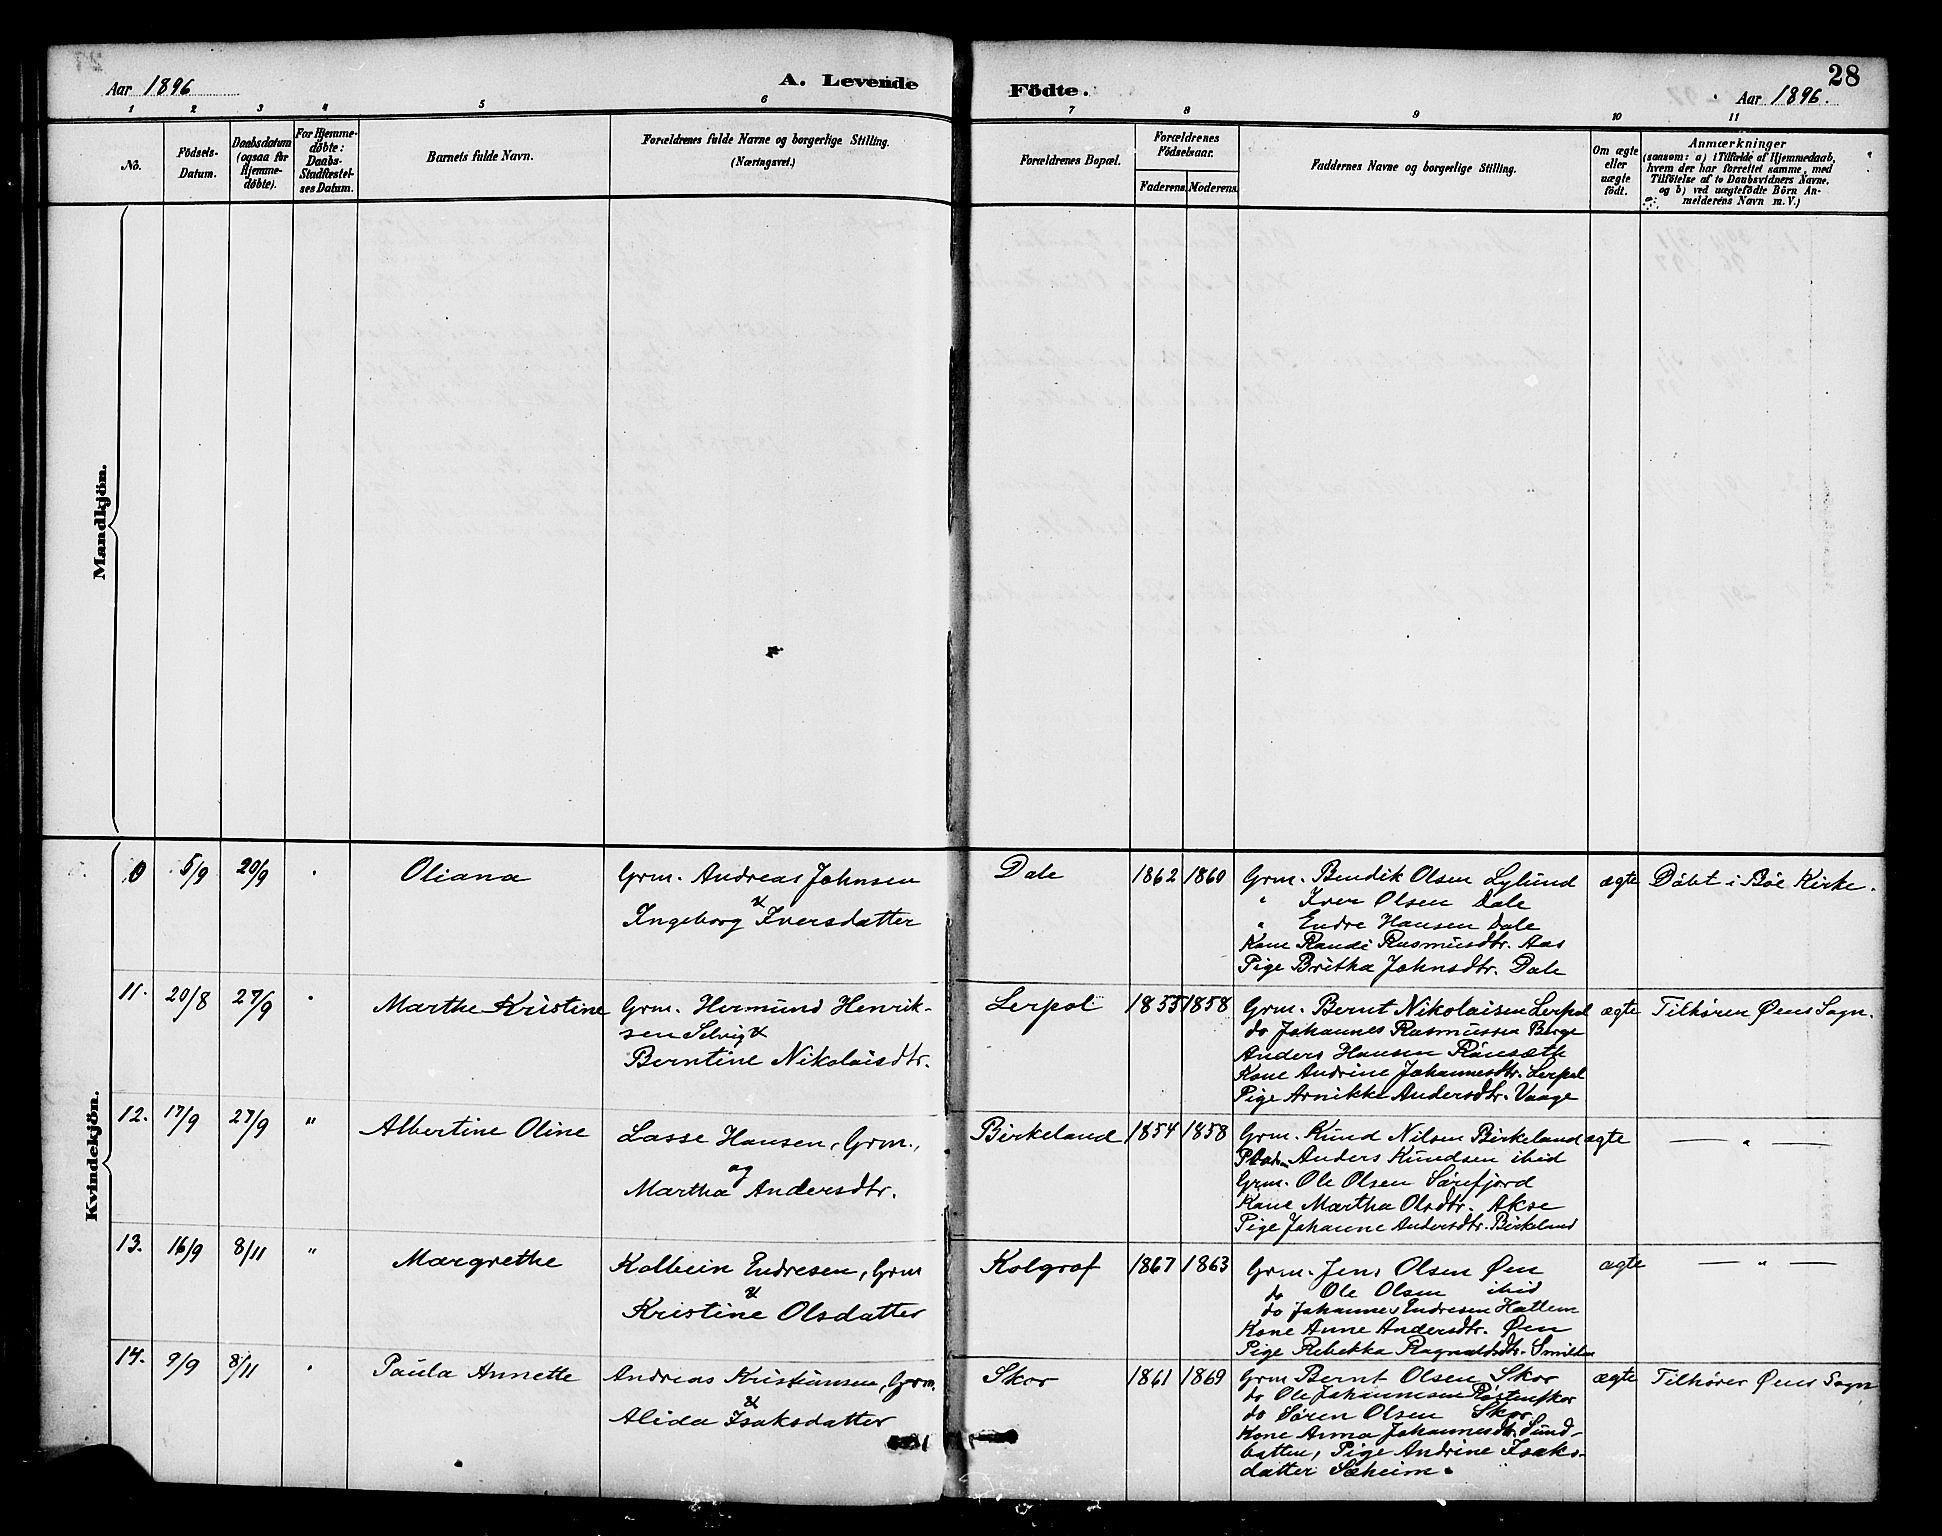 28
Aar 1896
A. Levende Födte.
Aar 1896.
1 2 3 4 5 6 7 8 9 10 11
No.
Födsels-
Datum.
Daabsdatum
(ogsaa for
Hjemme-
döbte).
For Hjemme-
döbte:
Daabs-
Stadfæstel-
ses Datum.
Barnets fulde Navn.
Forældrenes fulde Navne og borgerlige Stilling.
(Næringsvei.)
Forældrenes Bopæl.
Forældrenes
Födselsaar.
Faderens. Moderens.
Faddernes Navne og borgerlige Stilling.
Om ægte
eller
uægte
födt.
Anmærkninger
(saasom: a) i Tilfælde af Hjemmedaab,
hvem der har forrettet samme, med
Tilföielse af to Daabsvidners Navne,
og b) ved uægtefödte Börn An-
melderens Navn m. V.)
Mandkjön.
Kvindekjön.
0 5/9 20/9 Oliana
Grm. Andreas Johnsen
&
Ingeborg Iversdatter
Dale 1862 1860
Grm. Bendik Olsen Lylund
" Iver Olsen Dale
" Endre Hansen Dale
Kone Randi Rasmusdtr. Aas
Pige Britha Johnsdtr. Dale
ægte Döbt i Böe Kirke.
11. 20/8 27/9 Marthe Kristine
Grm. Hermund Henrik-
sen Selvig &
Berntine Nikolaisdtr.
Lerpol 1855 1858
Grm. Bernt Nikolaisen Lerpol
do Johannes Rasmussen Berge
Anders Hansen Rönsæth
Kone Andrine Johannesdtr. Lerpol
Pige Arnikke Andersdtr. Vaage
ægte Tilhören Øens Sogn.
12. 17/9 27/9 " Albertine Oline
Lasse Hansen, Grm.,
og
Martha Andersdtr.
Birkeland 1854 1858
Grm. Knud Nilsen Birkeland
Anders Knudsen ibid
Grm. Ole Olsen Sörefjord
Kone Martha Olsdtr. Akse
Pige Johanne Andersdtr. Birkeland
ægte — " —
13. 16/9 8/11 " Margrethe
Kolbein Endresen, Grm
&
Kristine Olsdatter
Kolgrof 1867 1863
Grm. Jens Olsen Øen
do Ole Olsen ibid
do Johannes Endresen Hatlem
Kone Anne Andersdtr. Øen
Pige Rebekka Ragnaldsdtr. Smilden
ægte — " —
14. 9/9 8/11 Paula Annette
Andreas Kristiansen, Grm.
&
Alida Isaksdatter
Skor 1861 1869
Grm Bernt Olsen Skor
do Ole Johannesen Röstenskor
do Sören Olsen Skor
Kone Anna Johannesdtr. Sund-
batten, Pige Andrine Isaks-
datter Sæheim.
ægte Tilhörer Øens Sogn